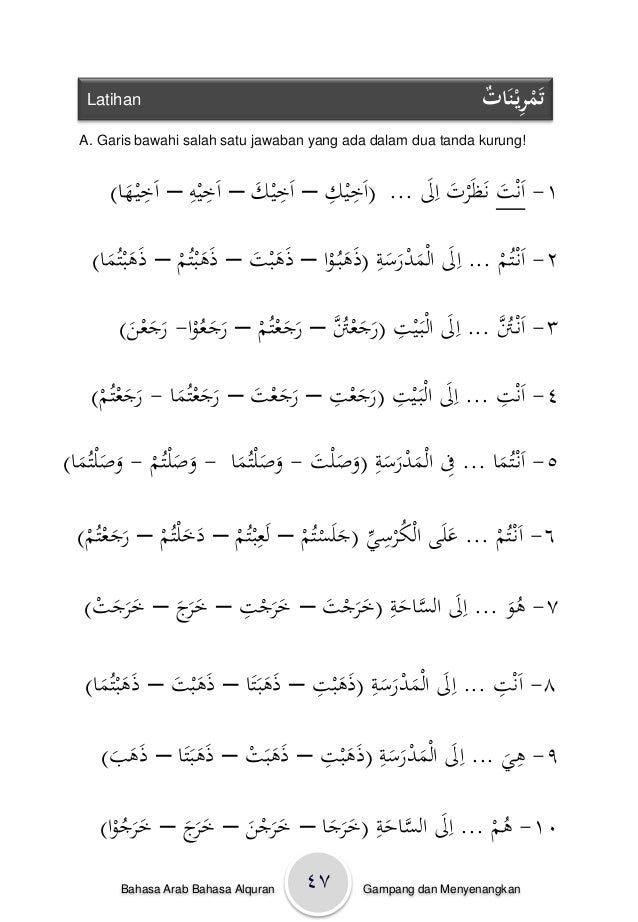 Latihan تَمْرِيْنَاتٌ
A. Garis bawahi salah satu jawaban yang ada dalam dua tanda kurung!
١ - اَنْتَ نَظَرْتَ اِلَى ... (اَخِيْكِ – اَخِيْكَ – اَخِيْهِ – اَخِيْهَا)
٢ - اَنْتُمْ ... اِلَى الْمَدْرَسَةِ (ذَهَبُوْا – ذَهَبْتَ – ذَهَبْتُمْ – ذَهَبْتُمَا)
٣ - اَنْتُنَّ ... اِلَى الْبَيْتِ (رَجَعْتُنَّ – رَجَعْتُمْ – رَجَعُوْا- رَجَعْنَ)
٤ - اَنْتِ ... اِلَى الْبَيْتِ (رَجَعْتِ – رَجَعْتَ – رَجَعْتُمَا - رَجَعْتُمْ)
٥ - اَنْتُمَا ... فِى الْمَدْرَسَةِ (وَصَلْتَ - وَصَلْتُمَا - وَصَلْتُمْ - وَصَلْتُمَا)
٦ - اَنْتُمْ ... عَلَى الْكُرْسِيِّ (جَلَسْتُمْ – لَعِبْتُمْ – دَخَلْتُمْ – رَجَعْتُمْ)
٧ - هُوَ ... اِلَى السَّاحَةِ (خَرَجْتَ – خَرَجْتِ – خَرَجَ – خَرَجَتْ)
٨ - اَنْتِ ... اِلَى الْمَدْرَسَةِ (ذَهَبْتِ – ذَهَبَتَا – ذَهَبْتَ – ذَهَبْتُمَا)
٩ - هِيَ ... اِلَى الْمَدْرَسَةِ (ذَهَبْتِ – ذَهَبَتْ – ذَهَبَتَا – ذَهَبَ)
١٠ - هُمْ ... اِلَى السَّاحَةِ (خَرَجَا – خَرَجْنَ – خَرَجَ – خَرَجُوْا)
Bahasa Arab Bahasa Alquran ٤٧ Gampang dan Menyenangkan